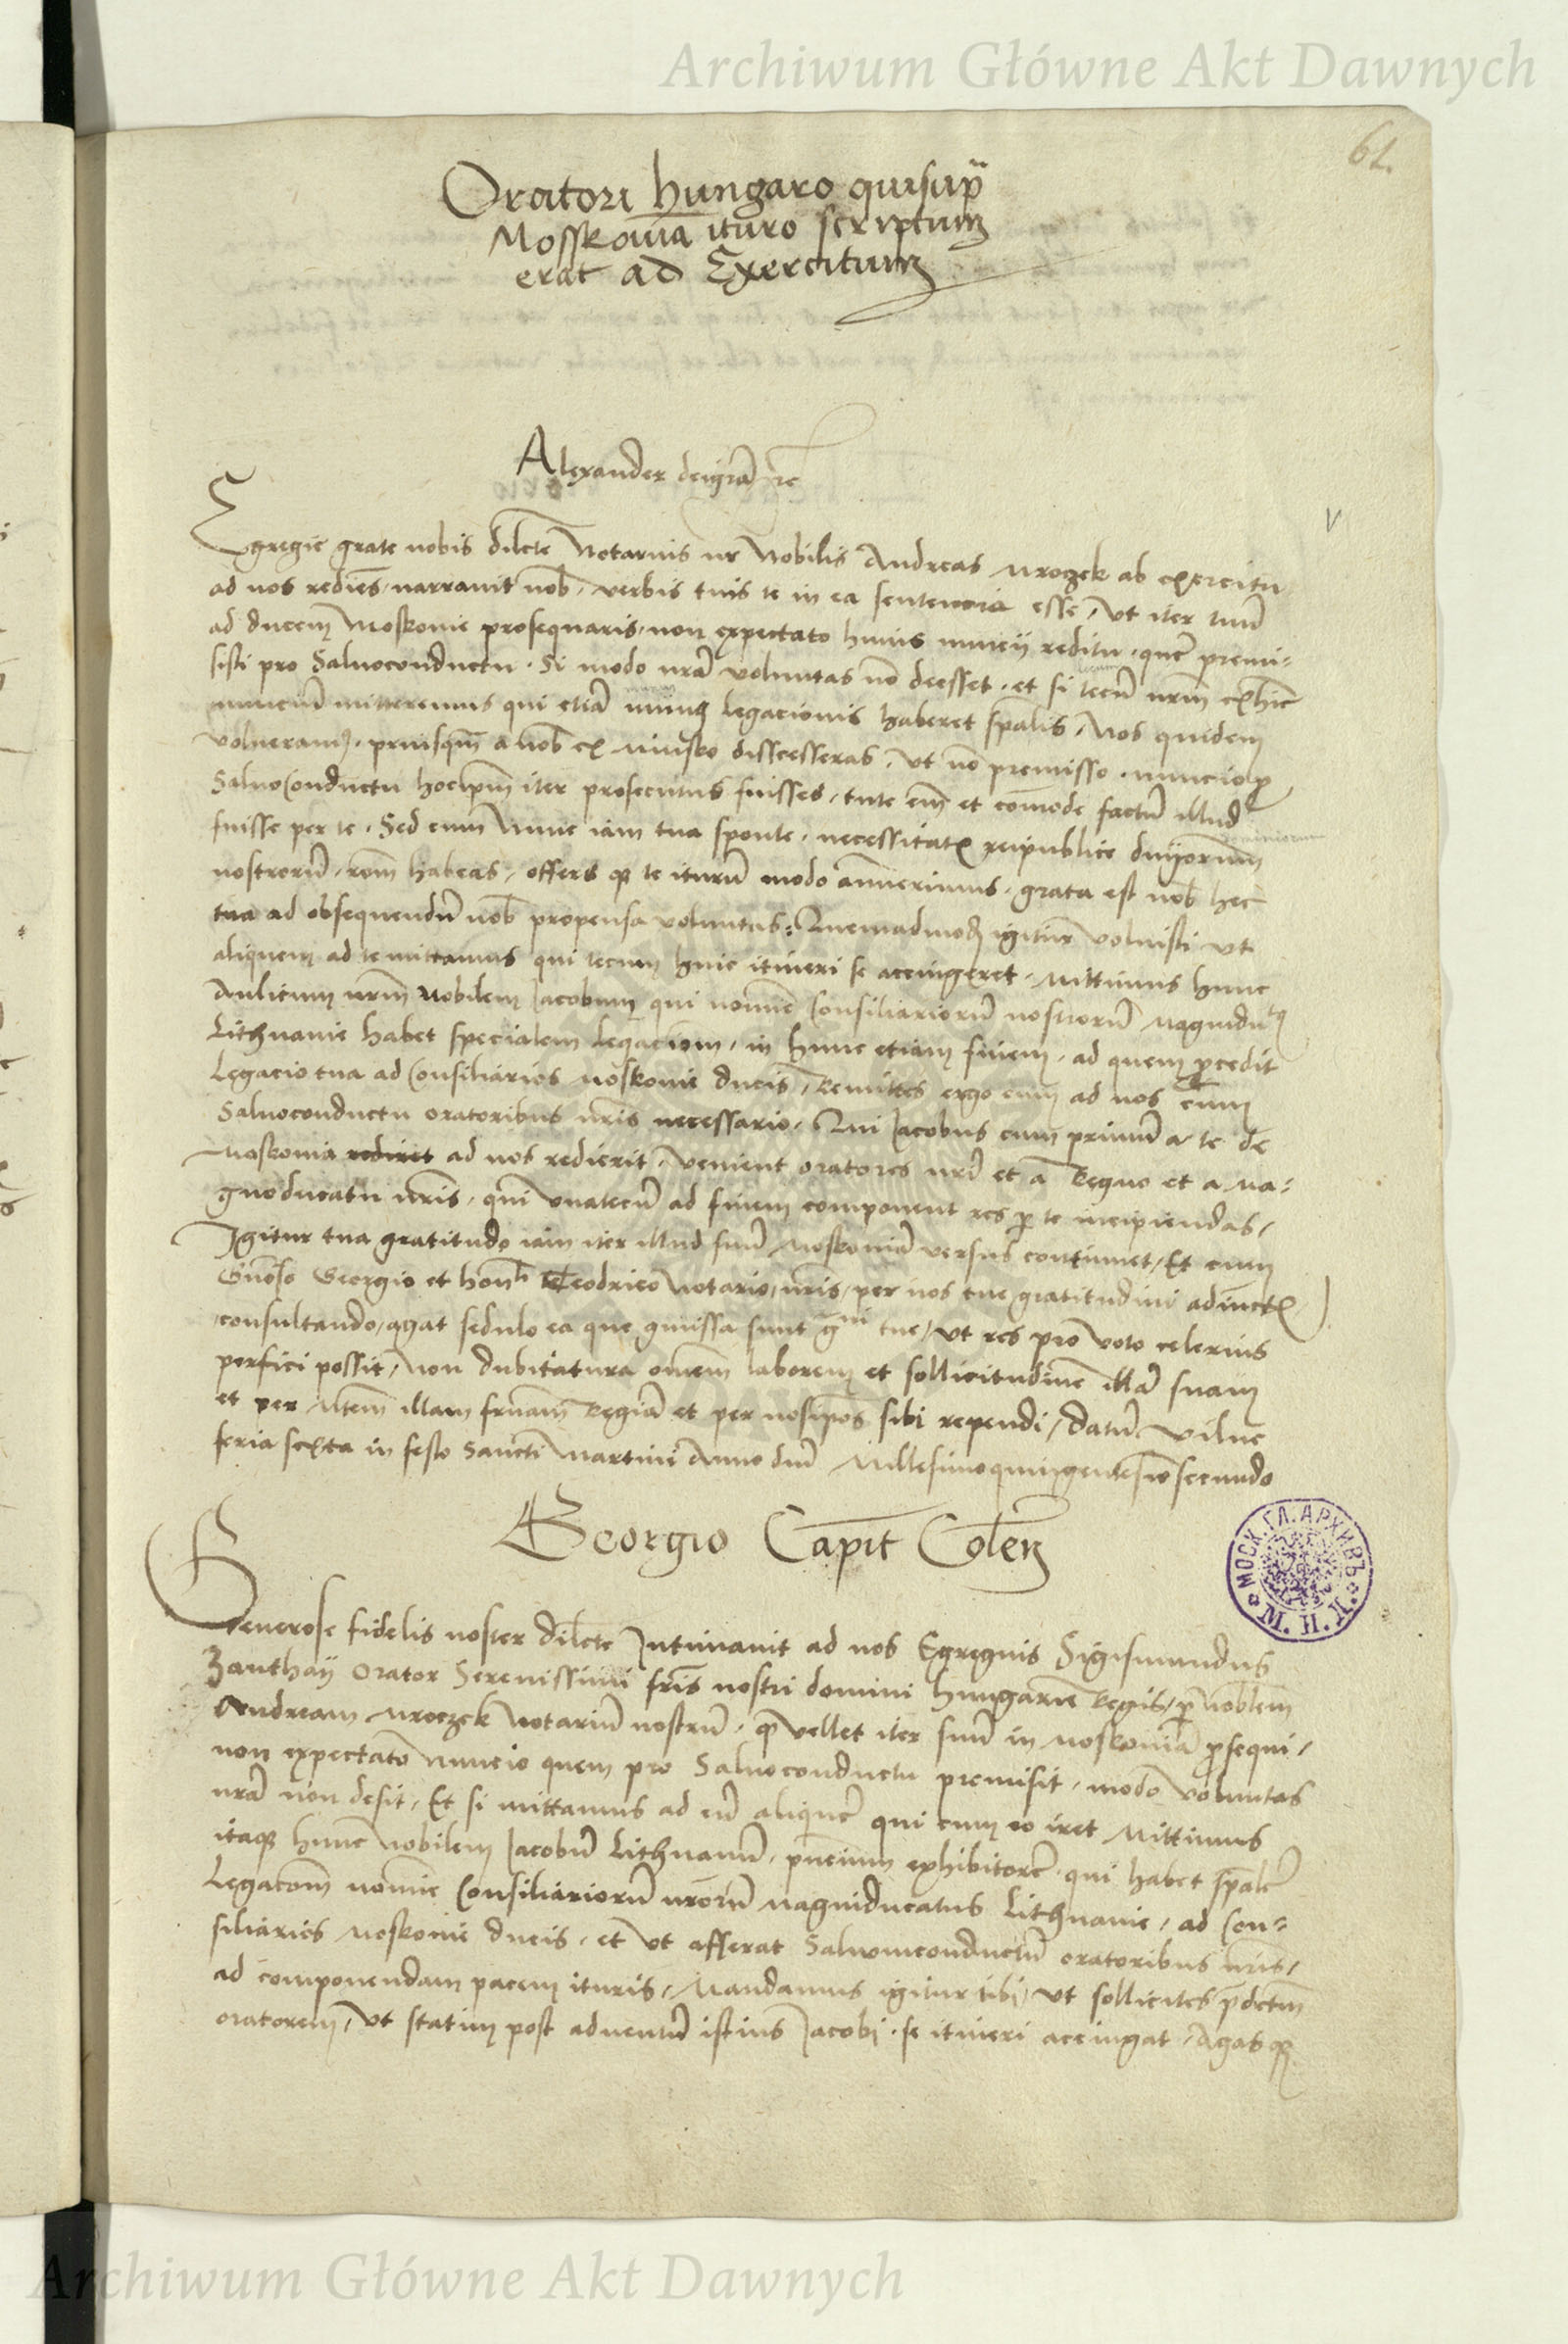 Archiwum Główne Akt Dawnych
61.
Oratori hungaro qui sup̄
Mosskouiā ituro scriptum
erat ad Exercitum
Alexander dei grā rc̄
Egregie grate nobis dilcte Notarius nr̄ Nobilis Andreas Mroczek ab exercitu
ad nos rediēs, narrauit nob, verbis tuis te in ea sentencia esse, Vt iter tuū
ad ducem Moskouie prosequaris, non expectato huius nuncij reditu, quē premi-
sisti pro Saluoconductu. Si modo nrā voluntas nō deesset, et si tecū nrm̄ ex hīc
nunciū mitteremus qui etiā legacionis haberet spālis, Nos quidem
volueram9, priusqm̄ a nob ex Minsko discesseras, Vt nō premisso nuncio p
SaluoConductu hoc ipm̄ iter prosecutus fuisses, tute em̄ et cōmode factū illud
fuisse per te. Sed cum Nunc iam tua sponte, necessitatꝭ reipublice dnijorum
nostrorū, rōm habeas, offers qꝫ te iturū modo annuerimus, grata est nob hec
tua ad obsequendū nob propensa voluntas: Quemadmodū igitur voluisti vt
aliquem ad te mittamus qui tecum huic itineri se accingeret, Mittimus hunc
Aulicum nrm̄ Nobilem Jacobum qui nomine Consiliariorū nostrorū Magnidutꝰ
Lithuanie habet specialem legaciōm, in hunc etiam finem, ad quem pcedit
Legacio tua ad Consiliarios Moskouie ducis, Remittes ergo eum ad nos cum
Saluoconductu oratoribus nr̄is necessario, Qui Jacobus cum primū a te de
Moskouia rediret ad nos redierit, venient oratores nrī et a Regno et a Ma-
gnoducatu nr̄is, qui vnatecū ad finem component res p te incipiendas,
Igitur tua gratitudo iam iter illud suū Moskouiā versus continuet, Et cum
Gnōso Georgio et hon̄li Teodrico Notario, nr̄is, per nos tue gratitudini adiunctꝭ
consultando, agat sedulo ea que ꝯmissa sunt g̅ni tue, Vt res pro voto celerius
perfici possit, Non dubitatura om̄em laborem et sollicitudinē illā suam
et per Mtem̄ illam frnām Regiā et per nosip̄os sibi rependi, Datū Vilne
feria sexta in festo Sancti Martini Anno dnī Millesimoquingentesīo secundo
Georgio Capit̄ Colen̄
Generose fidelis noster dilcte Intimauit ad nos Egregius Sigismundus
Zanthay Orator Serenissimi fr̄is nostri domini hungarie Regis, p nōblem
Andream Mroczek Notariū nostrū, qꝫ vellet iter suū in Moskouiā psequi,
non expectato Nuncio quem pro Saluoconductu premisit, modo voluntas
nrā non desit, Et si mittamus ad eū aliquē qui cum eo iret Mittimus
itaqꝫ hunc Nobilem Jacobū Lithuanū, pn̄cium exhibitorē, qui habet spālē
Legacōm nomīe Consiliariorū nrōrū Magniducatus Lithuanie, ad Con-
siliarios Moskouie ducis, et vt afferat Saluumconductū oratoribus nr̄is,
ad componendam pacem ituris, Mandamus igitur tibi, Vt sollicites pdctm̄
oratorem, Vt statim post aduentū istius Jacobi, se itineri accingat, Agas qꝫ
МОСК. ГЛ. АРХИВЪ
М. И. Д.
Archiwum Główne Akt Dawnych